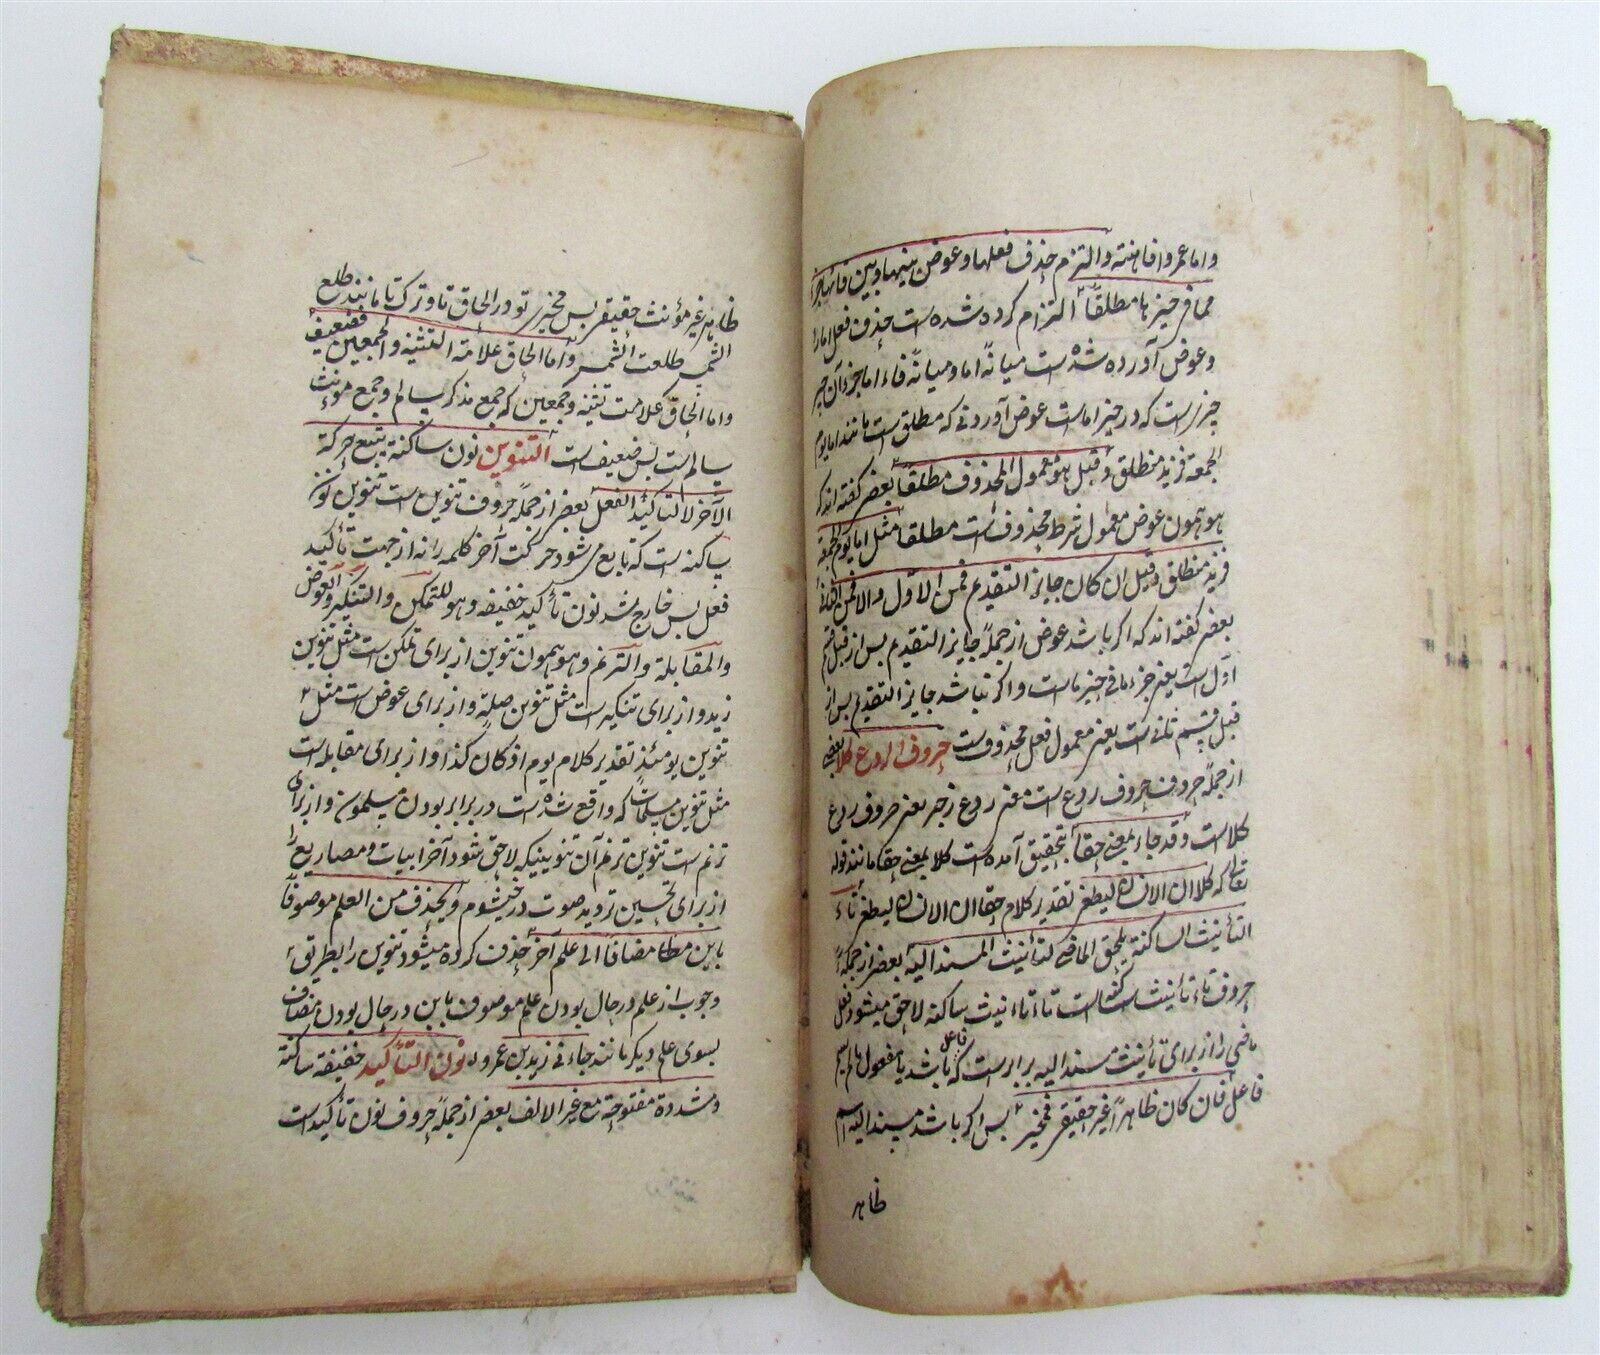 واما عمروا فاهنته والتزم حذف فعلها وعوض بينها وبين فائها جزء
مما فی حیزها مطلقاً التزام کرده شده است حذف فعل اما را
وعوض آورده شده است میانه اما ومیانه فاء اما جزء آن چیز
چیزیست که در حیز اماست عوض آوردنی که مطلق است مانند اما یوم
الجمعة فزید منطلق وقیل هو معمول المحذوف مطلقاً بعضی کفته اند که
هو همون عوض معمول شرط محذوف است مطلقا مثل اما یوم الجمعة
فزید منطلق وقیل ان کان جایز التقدیم فمن الاول والا فمن الثانی
بعضی کفته اند که اکر باشد عوض از جمله جایز التقدیم بس از قبیل قسم
اول است یعنی جزء ما فی حیزهاست واکر نباشد جایز التقدیم بس از
قبیل قسم ثانی است یعنی معمول فعل محذوفست حروف الردع کلا بعضی
از جمله حروف حروف ردع است معنی ردع زجر یعنی حروف ردع
کلاست وقد جاء بمعنی حقاً بتحقیق آمده است کلا بمعنی حقا مانند قوله
تعالی که کلا ان الانسان لیطغی تقدیر کلام حقا ان الانسان لیطغی تاء
التأنیث الساکنة یلحق الماضی لتأنیث المسند الیه بعضی از جمله
حروف تاء تأنیث است تاء تأنیث ساکنه لاحق میشود فعل
ماضی را از برای تأنیث مسند الیه برابرست که فاعل باشد یا مفعول مالم یسم
فاعله فان کان ظاهراً غیر حقیقی فمخیر بس اکر باشد مسند الیه اسم
ظاهر
ظاهر غیر مؤنث حقیقی بس مخیری تو در الحاق تا وترک تا مانند طلع
الشمس طلعت الشمس واما الحاق علامة التثنیه والجمعین فضعیف
واما الحاق علامت تثنیه وجمعین که جمع مذکر سالم وجمع مؤنث
سالم است بس ضعیف است التنوین نون ساکنة یتبع حرکة
الآخر لا لتاکید الفعل بعضی از جمله حروف تنوین است تنوین نون
ساکنه است که تابع میشود حرکت آخر کلمه را نه از جهت تأکید
فعل بس خارج شد نون تأکید خفیفه وهو للتمکن والتنکیر والعوض
والمقابلة والترنم وهو همون تنوین از برای تمکن است مثل تنوین
زید واز برای تنکیر است مثل تنوین صهٍ واز برای عوض است مثل
تنوین یومئذ تقدیر کلام یوم اذ کان کذا واز برای مقابله است
مثل تنوین مسلمات که واقع شده است در برابر بودن مسلمون واز برای
ترنم است تنوین ترنم آن تنوینیکه لاحق شود آخر ابیات ومصاریع را
از برای تحسین تردید صوت در خیشوم ویحذف من العلم موصوفاً
بابن مضافا الی علم آخر حذف کرده میشود تنوین را بطریق
وجوب از علم در حال بودن علم موصوف بابن در حال بودن مضاف
بسوی علم دیکر مانند جاءنی زید بن عمرو نون التأکید خفیفة ساکنة
ومشددة مفتوحة مع غیر الالف بعضی از جمله حروف نون تأکید است